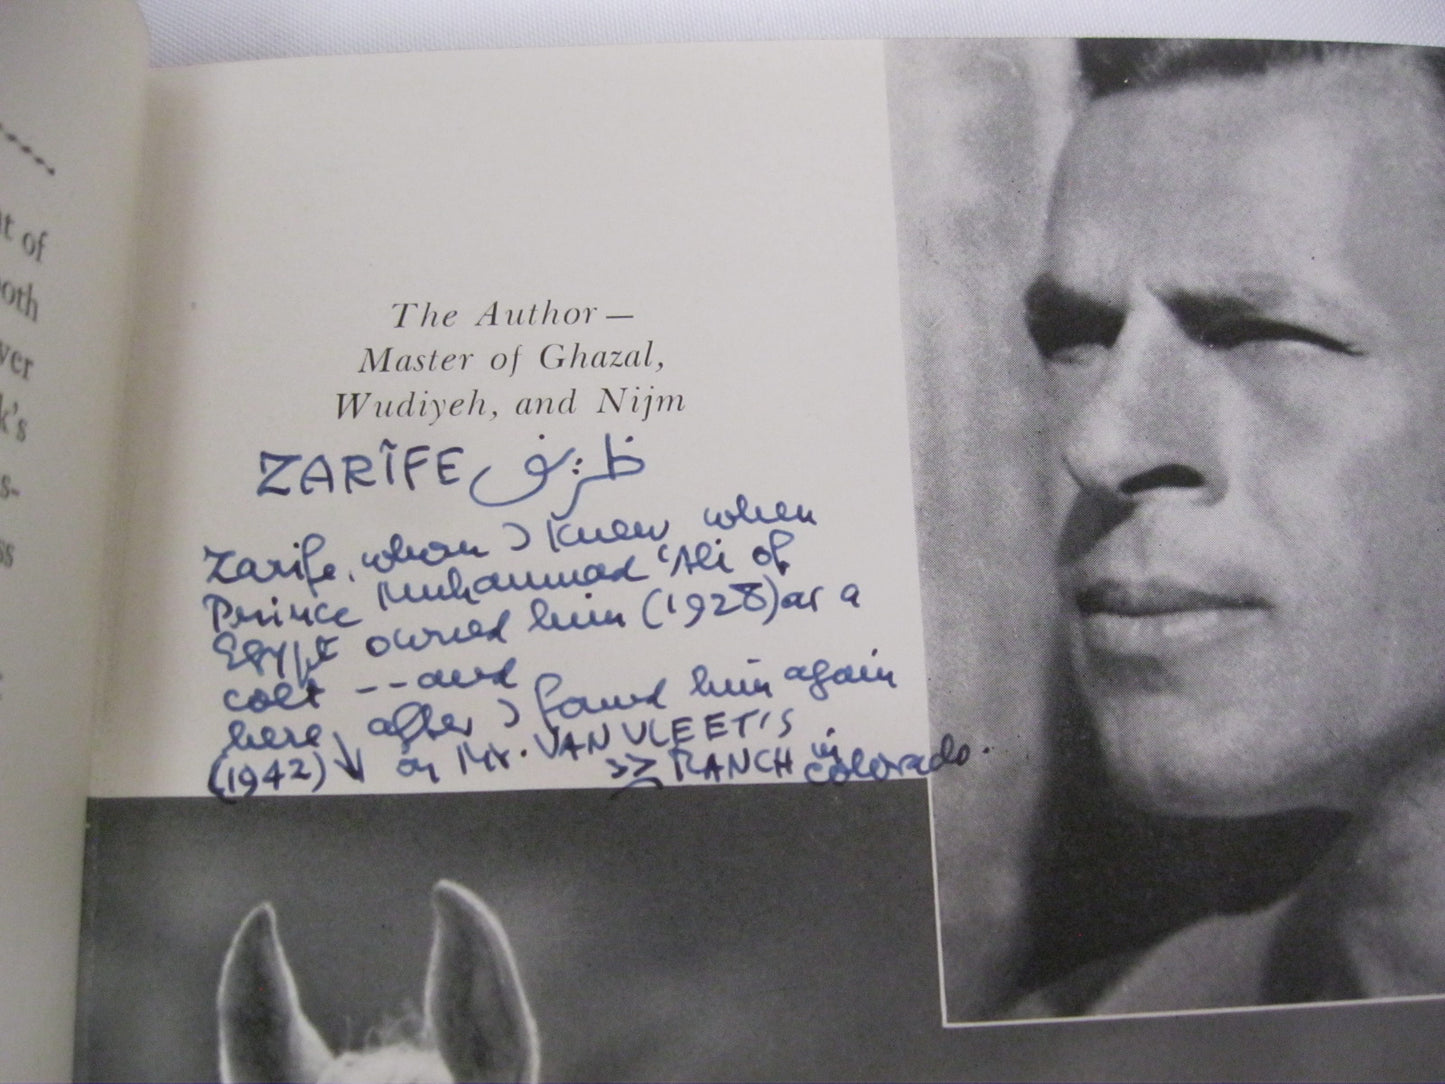 t of
oth
ver
k's
s-
ss
The Author —
Master of Ghazal,
Wudiyeh, and Nijm
ZARÎFE ظريف
Zarife, whom I knew when
Prince Muhammad 'Ali of
Egypt owned him (1928) as a
colt -- and
here, after I found him again
(1942) on Mr. VAN VLEET'S
>> RANCH in Colorado.